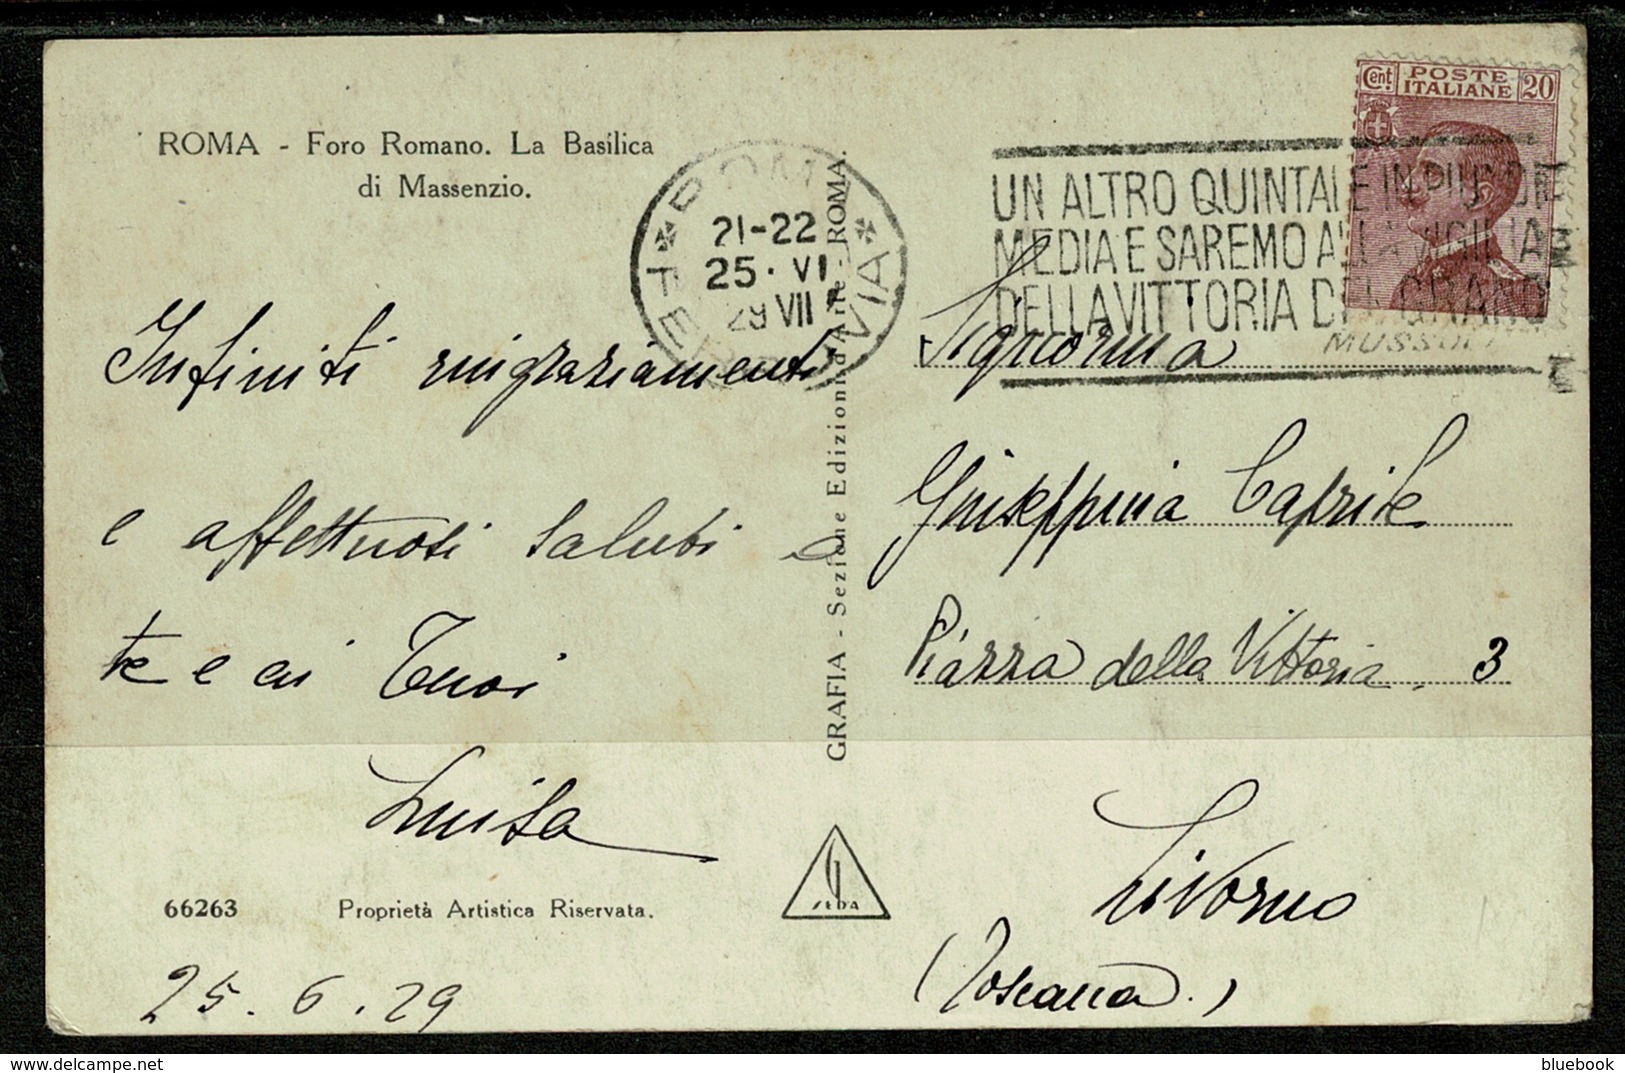 ROMA - Foro Romano. La Basilica
di Massenzio.
Cent. POSTE ITALIANE 20
21-22
25 · VI
29 VII
UN ALTRO QUINTALE IN PIU' DI
MEDIA E SAREMO ALLA VIGILIA
DELLA VITTORIA DEL GRANO
MUSSOLINI
Infiniti ringraziamenti
e affettuosi saluti a
te e ai Tuoi
Luisa
66263 Proprietà Artistica Riservata.
25. 6. 29
GRAFIA - Sezione Edizioni d'Arte - ROMA.
Signorina
Giuseppina Caprile
Piazza della Vittoria. 3
Livorno
(Toscana.)
bluebook